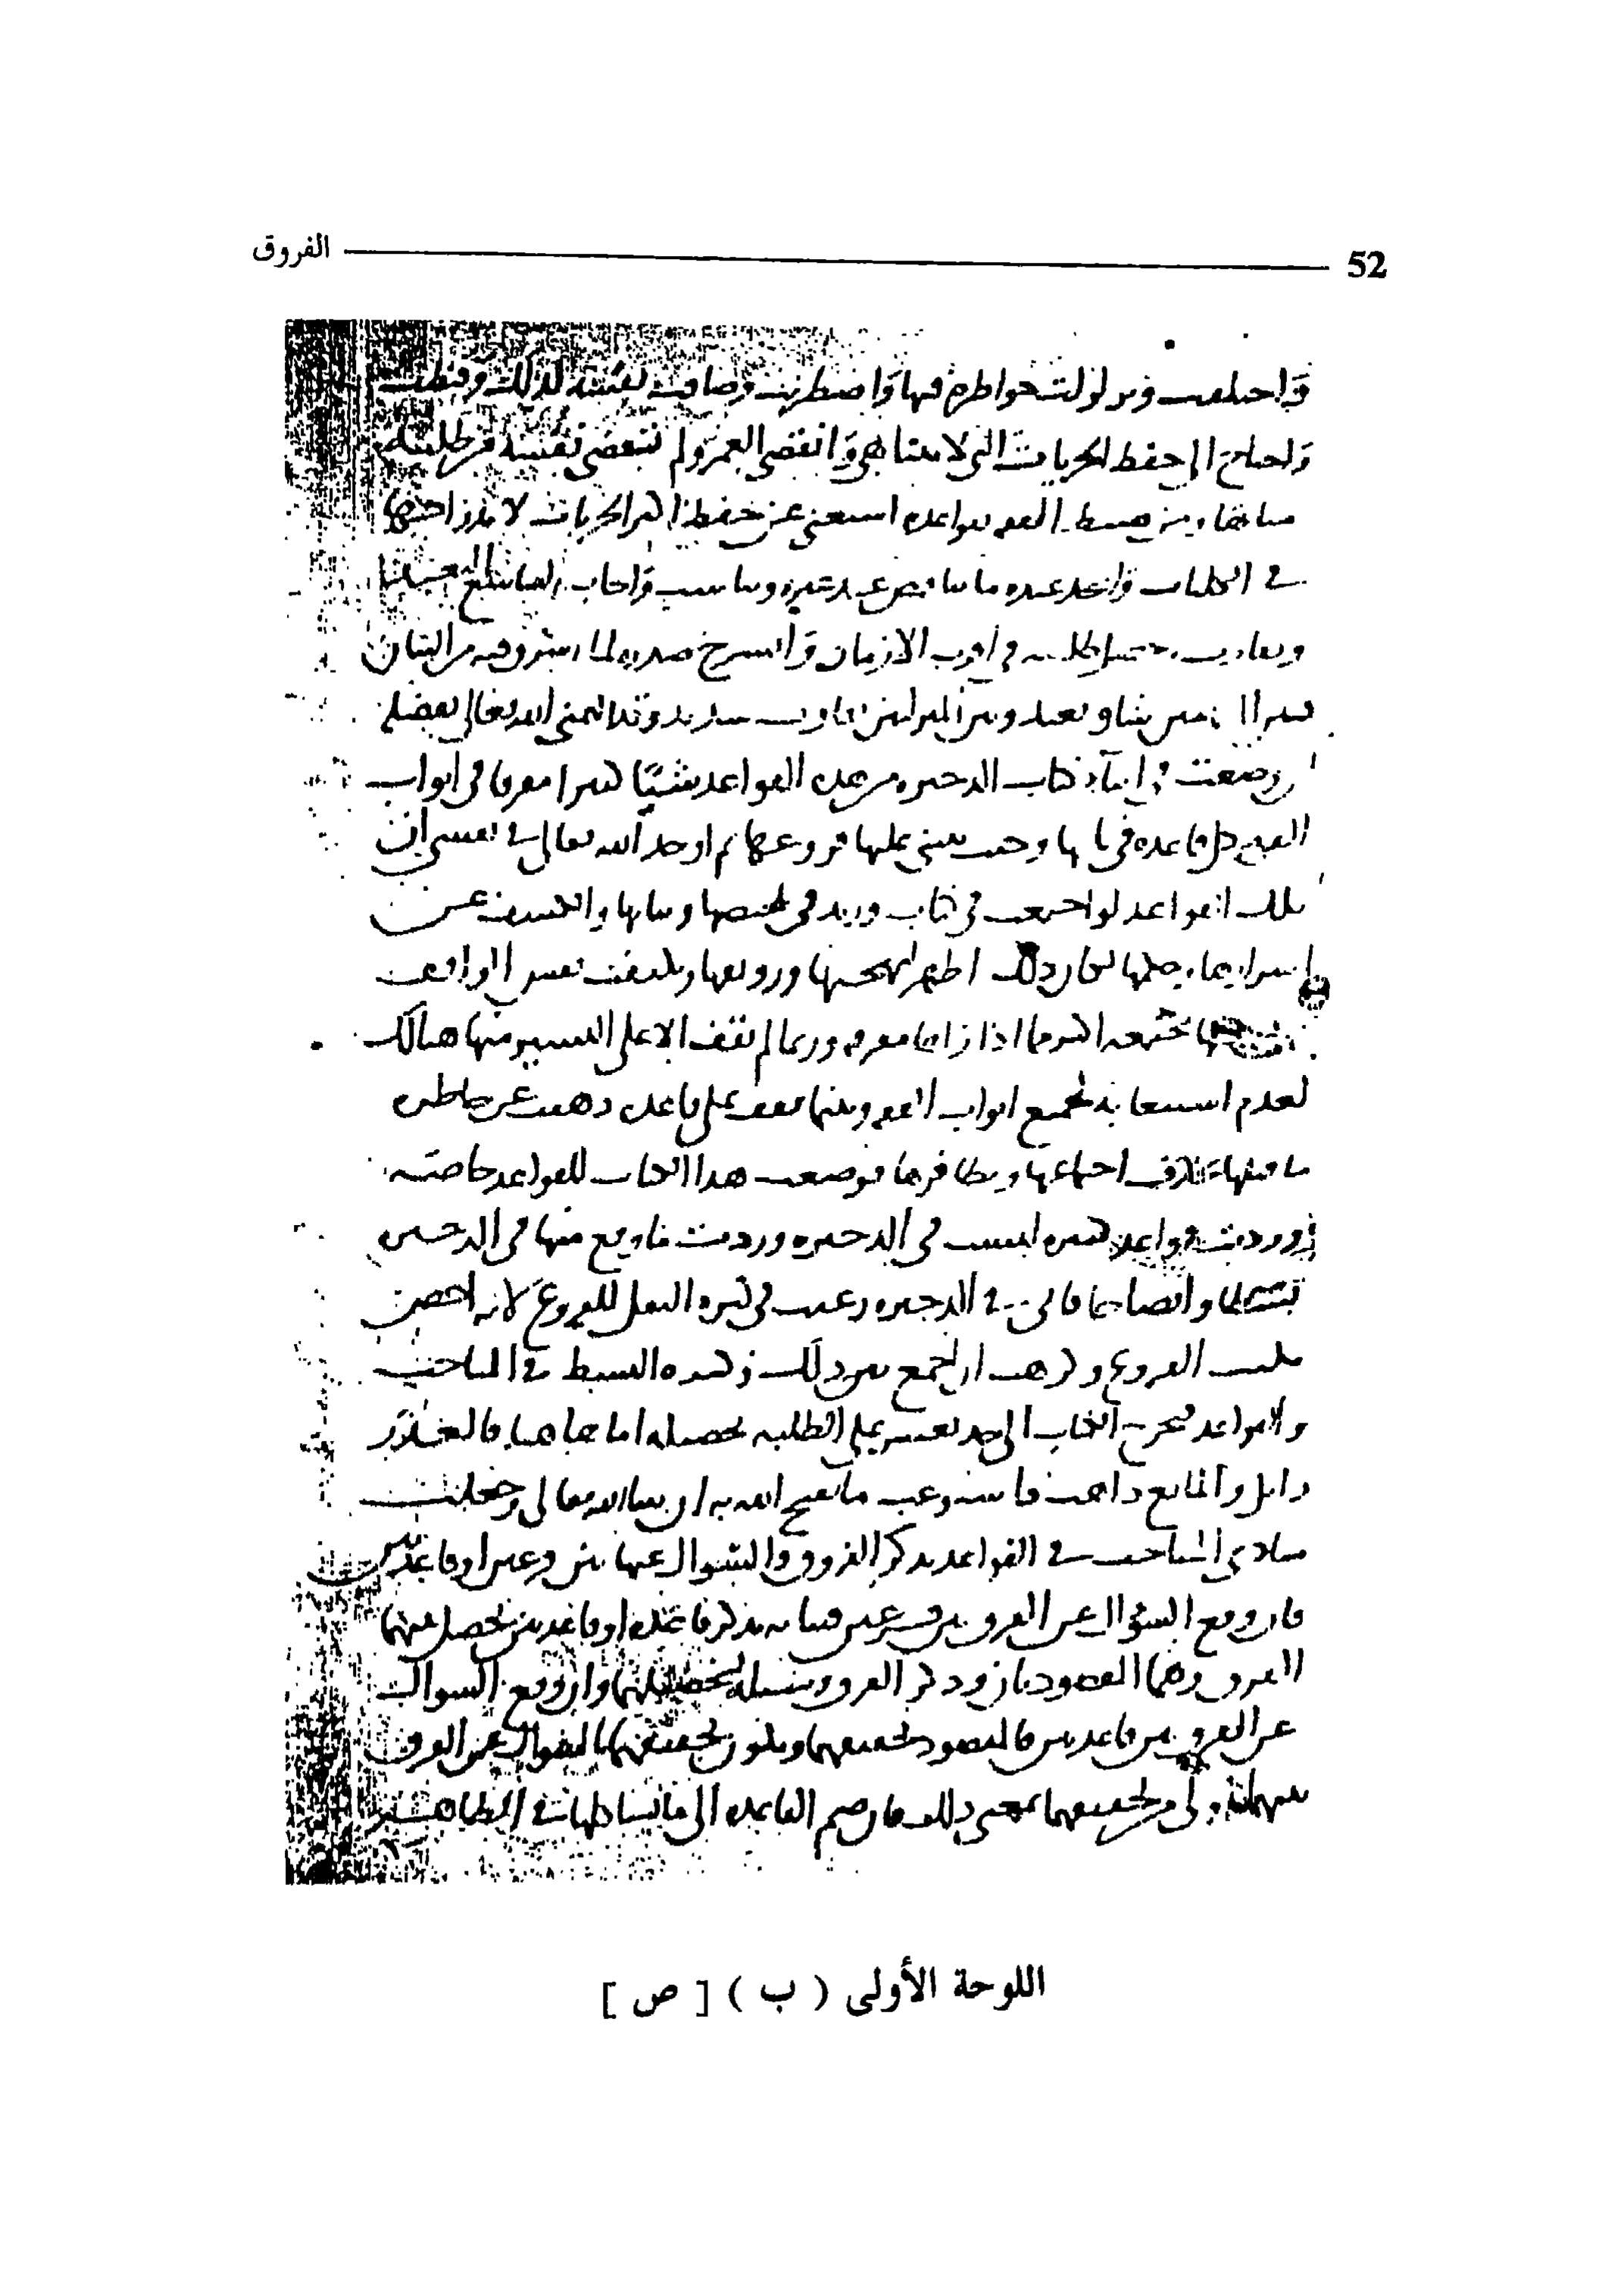 الفروق
52
واختلفت وتزلزلت خواطره فيها واضطربت وضاقت نفسه لذلك وقنطت
واحتاج إلى حفظ الجزيات التي لا تتناهى وانقضى العمر ولم تقض نفسه من طلبته
مناها ومن ضبط الفقه بقواعده استغنى عن حفظ اكثر الجزيات لاندراجها
في الكليات واتحد عنده ما تناقض عند غيره وتناسب واجاب الشاسع البعيد
وتقارب وحصل طلبته في اقرب الازمان وانشرح صدره لما اشرق فيه من البيان
فبين المقامين شاو بعيد وبين المنزلتين تفاوت شديد وقد الهمني الله تعالى بفضله
ان وضعت في اثناء كتاب الذخيرة من هذه القواعد شيئا كثيرا مفرقا في ابواب
الفقه كل قاعدة في بابها وحيث تبنى عليها فروعها ثم اوجد الله تعالى في نفسي ان
تلك القواعد لو اجتمعت في كتاب وزيد في تلخيصها وبيانها والكشف عن
اسرارها وحكمها لكان ذلك اظهر لبهجتها ورونقها وتكيفت نفس الواقف
عليها بها مجتمعة اكثر مما اذا راها مفرقة وربما لم يقف الا على اليسير منها هنالك
لعدم استيعابه لجميع ابواب الفقه واينما يقف على قاعدة ذهبت عن خاطره
ما قبلها بخلاف اجتماعها وتظافرها فوضعت هذا الكتاب للقواعد خاصة
وزدت قواعد كثيرة ليست في الذخيرة وزدت ما وقع منها في الذخيرة
بسطا وايضاحا فاني في الذخيرة رغبت في كثرة النقل للفروع لانه اخص
بكتب الفروع وكرهت ان اجمع بين ذلك وكثرة البسط في المباحث
والقواعد فيخرج الكتاب الى حد يعسر على الطلبة تحصيله اما هاهنا فالعذر
زايل والمانع ذاهب فاستوعب ما يفتح الله به ان شاء الله تعالى وجعلت
مبادي المباحث في القواعد بذكر الفروق والسؤال عنها بين فرعين او قاعدتين
فان وقع السؤال عن الفرق بين فرعين فبيانه بذكر قاعدة او قاعدتين يحصل بهما
الفرق وهما المقصودتان وذكر الفرق وسيلة لتحصيلهما وان وقع السؤال
عن الفرق بين قاعدتين فالمقصود تحقيقهما ويكون تحقيقهما بالسؤال عن الفرق
بينهما اولى من تحقيقهما بغير ذلك فان ضم القاعدة الى ما يشاكلها في الظاهر
اللوحة الأولى ( ب ) [ ص ]